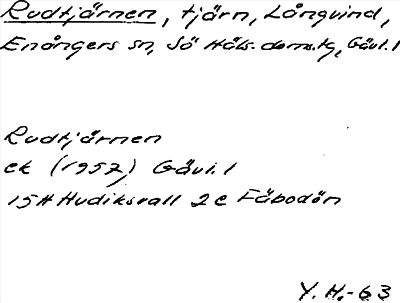 Rudtjärnen, tjärn, Långvind,
Enångers sn, Sö Häls. doms., Gävl. l
Rudtjärnen
ek (1957) Gävl. l
15H Hudiksvall 2c Fäbodön
Y. H.-63